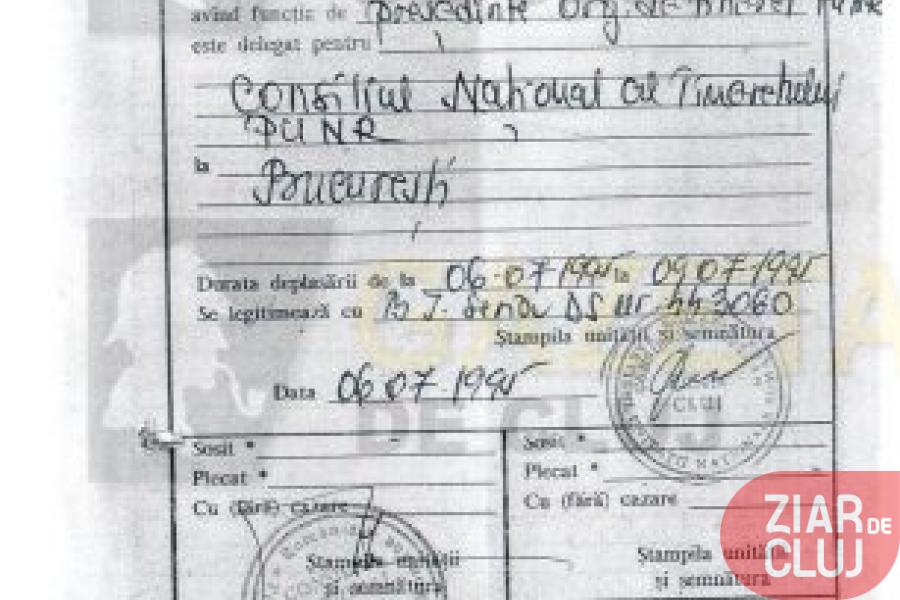 având funcția de președinte Org. de tineret
este delegat pentru
Consiliul National al Tineretului
PUNR
la București
Durata deplasării de la 06.07 1995 la 09.07.1995
Se legitimează cu B.I. seria DS nr 443060
Ștampila unității și semnătura
Data 06 07 1995
CLUJ
DE CLUJ
Sosit *
Plecat *
Cu (fără) cazare
Ștampila unității
și semnătura
Sosit *
Plecat *
Cu (fără) cazare
Ștampila unității
și semnătura
România
ZIAR DE
CLUJ